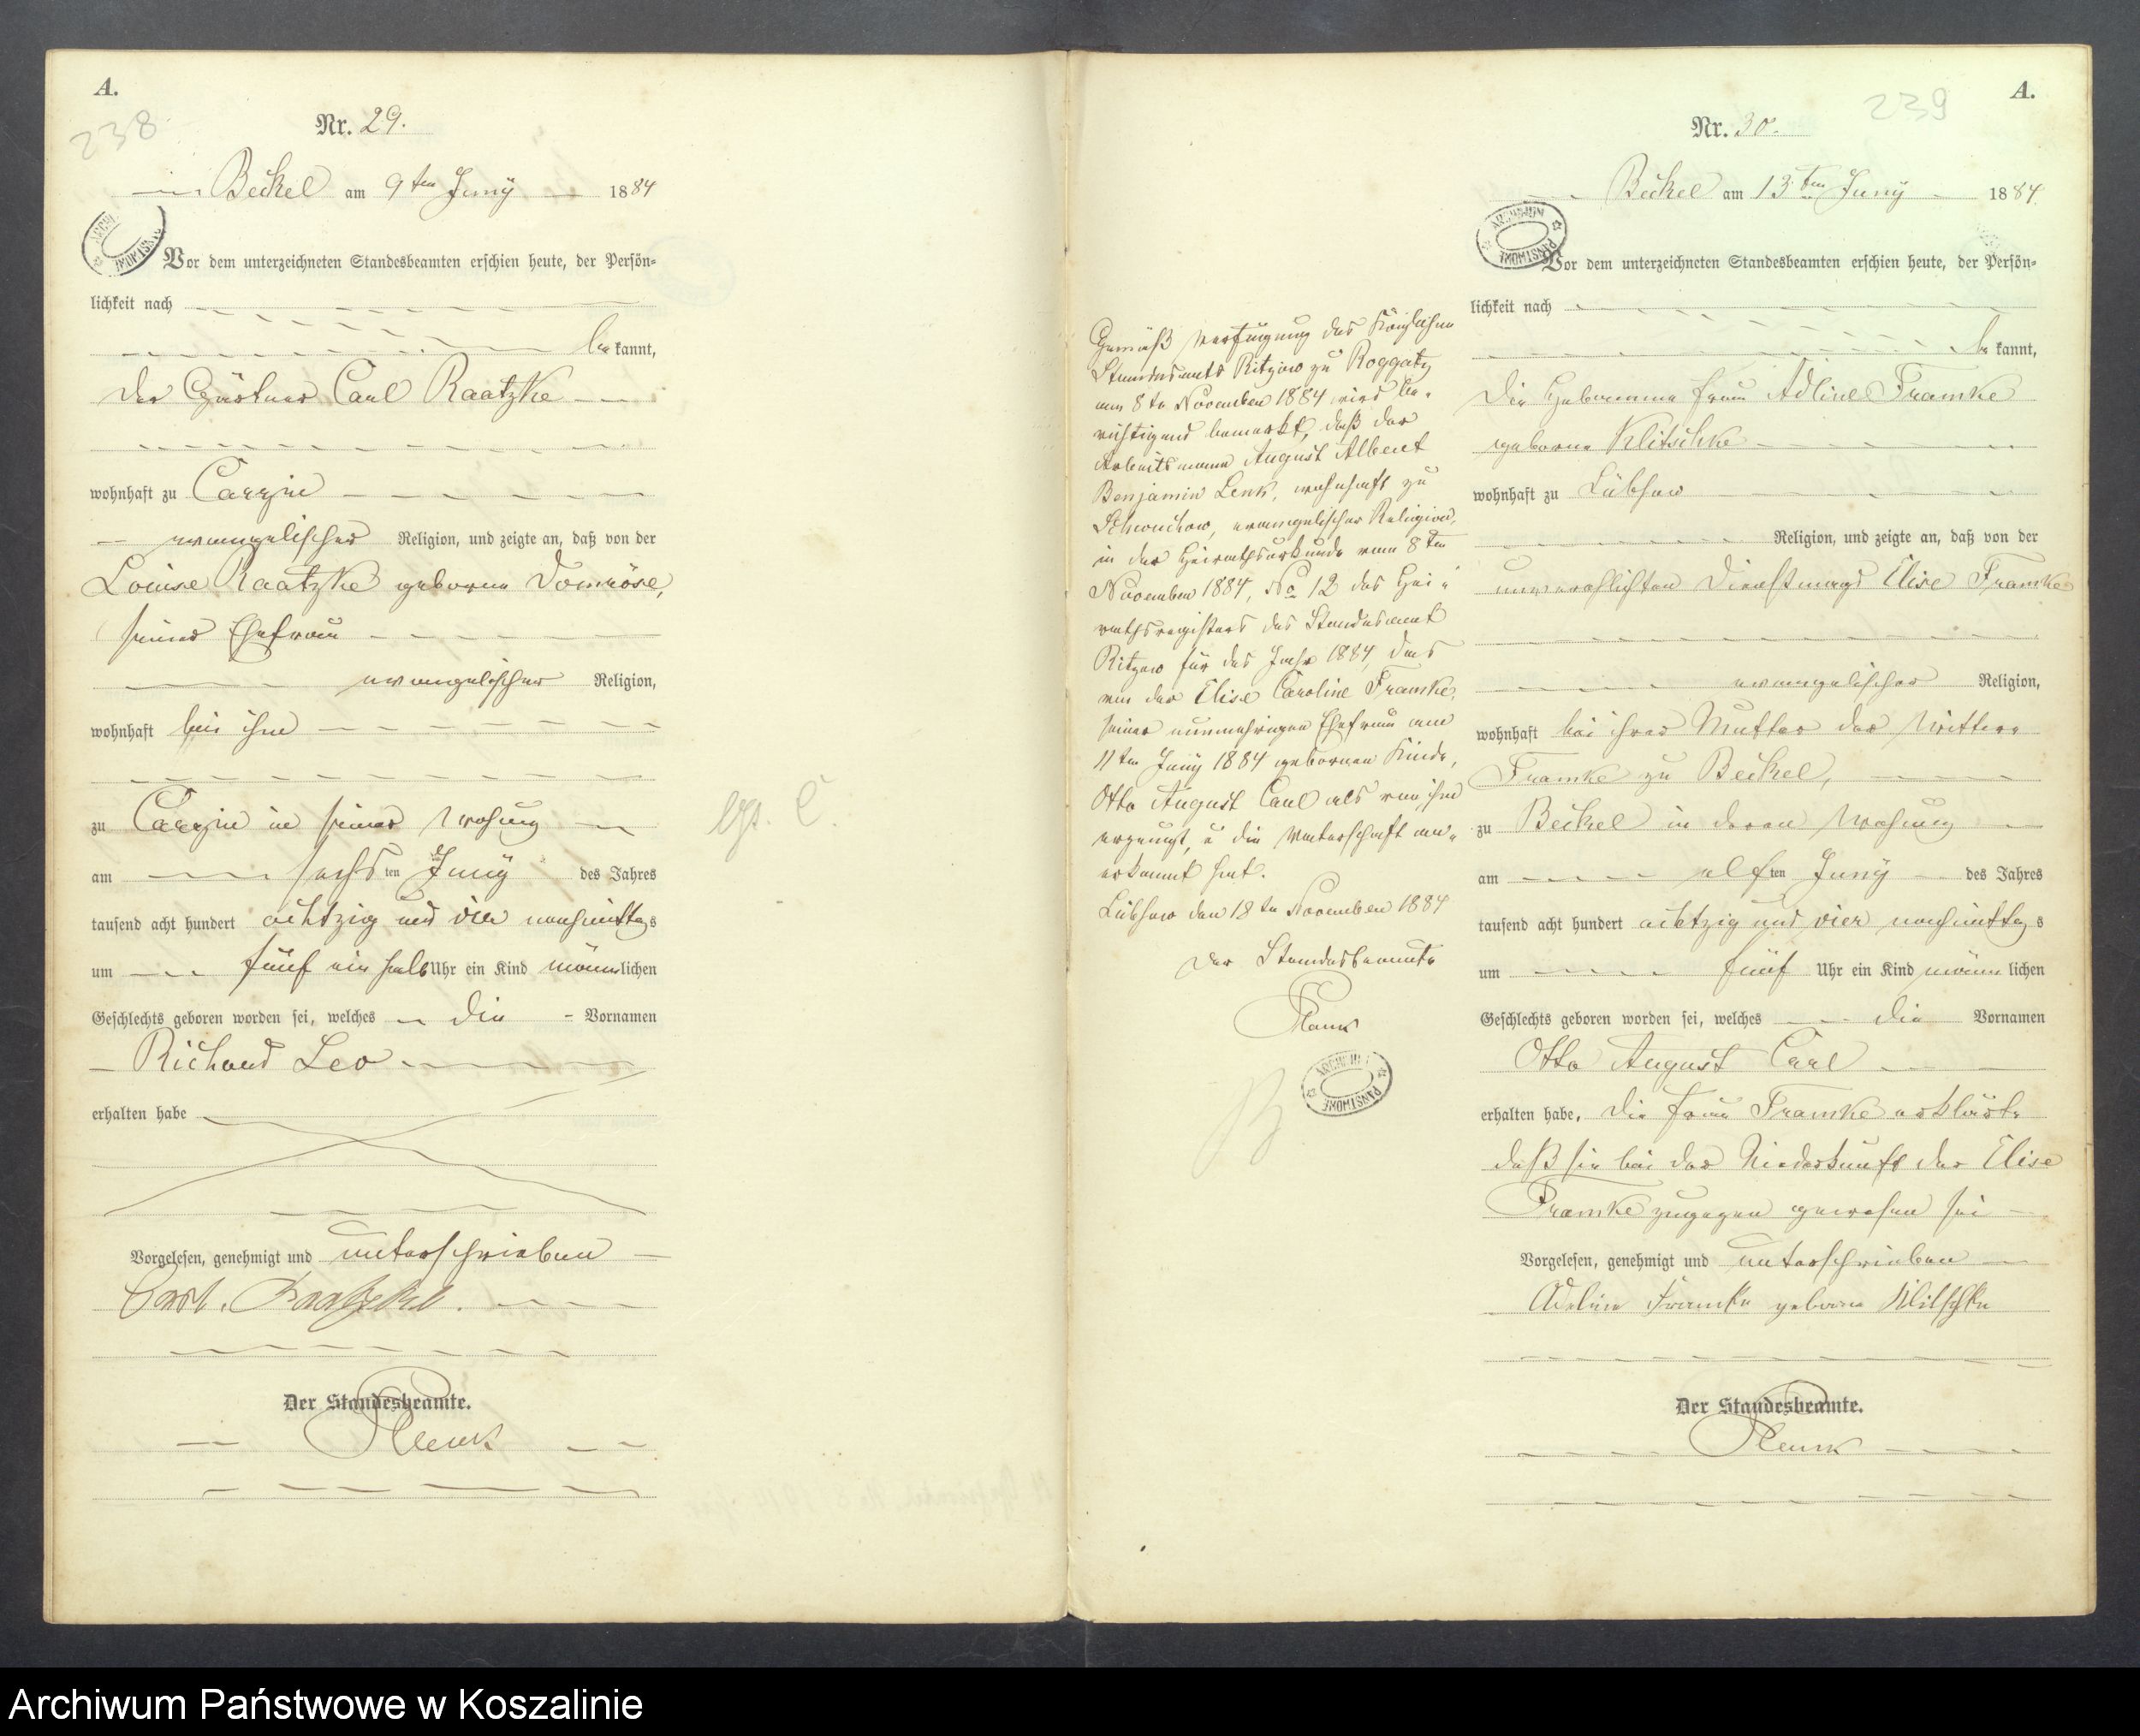 A.
238
Nr. 29.
Beckel am 9ten Juny 1884
Vor dem unterzeichneten Standesbeamten erschien heute, der Persön-
lichkeit nach
be kannt,
der Gärtner Carl Raatzke
wohnhaft zu Carzin
evangelischer Religion, und zeigte an, daß von der
Louise Raatzke geborne Domröse,
seiner Ehefrau
evangelischer Religion,
wohnhaft bei ihm
zu Carzin in seiner Wohung
am sechs ten Juny des Jahres
tausend acht hundert achtzig und vier nachmittags
um fünf ein halb Uhr ein Kind männlichen
Geschlechts geboren worden sei, welches die Vornamen
Richard Leo
erhalten habe
Vorgelesen, genehmigt und unterschrieben
Carl Raatzke.
Der Standesbeamte.
Gemäß Verfügung des Königlichen
Standesamts Ritzow zu Roggatz
vom 8te November 1884 wird be-
richtigend bemerkt, daß der
Arbeitsmann August Albert
Benjamin Lenk, wohnhaft zu
Schwuchow, evangelischer Religion,
in der Heirathsurkunde vom 8ten
November 1884, No 12 des Hei-
rathsregisters des Standesamt
Ritzow für das Jahr 1884, das
von der Elise Caroline Framke,
seiner nunmehrigen Ehefrau am
11ten Juny 1884 geborenen Kinde,
Otto August Carl als von ihm
erzeugt, u die Vaterschaft an-
erkannt hat.
Lübsow den 18te November 1884
Der Standesbeamte
ARCHIWUM PAŃSTWOWE
A.
239
Nr. 30.
Beckel am 13ten Juny 1884
ARCHIWUM PAŃSTWOWE
Vor dem unterzeichneten Standesbeamten erschien heute, der Persön-
lichkeit nach
be kannt,
die Hebamme Frau Adline Framke
geborne Klitschke
wohnhaft zu Lübsow
Religion, und zeigte an, daß von der
unverehlichten Dienstmagd Elise Framke
evangelischer Religion,
wohnhaft bei ihrer Mutter der Wittwe
Framke zu Beckel,
zu Beckel in deren Wohung
am elf ten Juny des Jahres
tausend acht hundert achtzig und vier nachmittags
um fünf Uhr ein Kind männlichen
Geschlechts geboren worden sei, welches die Vornamen
Otto August Carl
erhalten habe, die Frau Framke erklärte
daß sie bei der Niederkunft der Elise
Framke zugegen gewesen sei
Vorgelesen, genehmigt und unterschrieben
Adeline Framke geborne Klitschke
Der Standesbeamte.
Archiwum Państwowe w Koszalinie